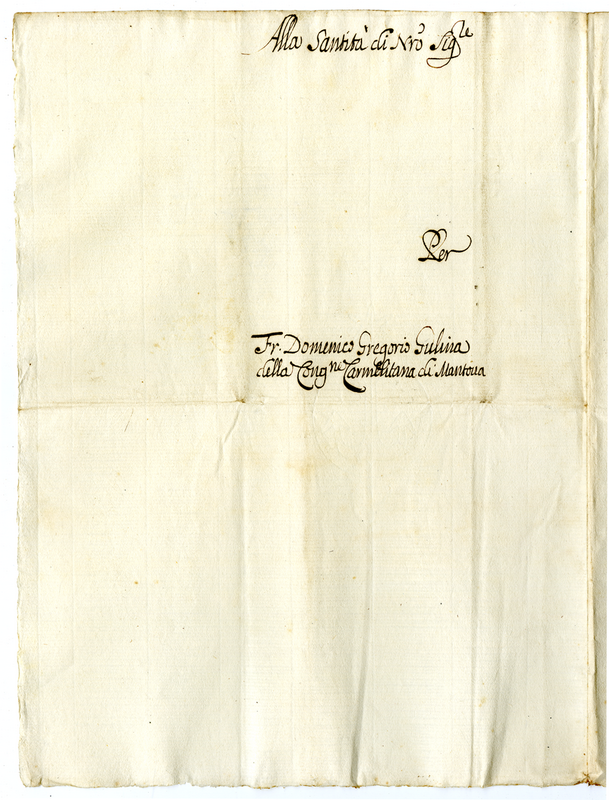 Alla Santità di Nrõ Sig.re
Per
Fr. Domenico Gregorio Gulina
della Cong.ne Carmelitana di Mantoua